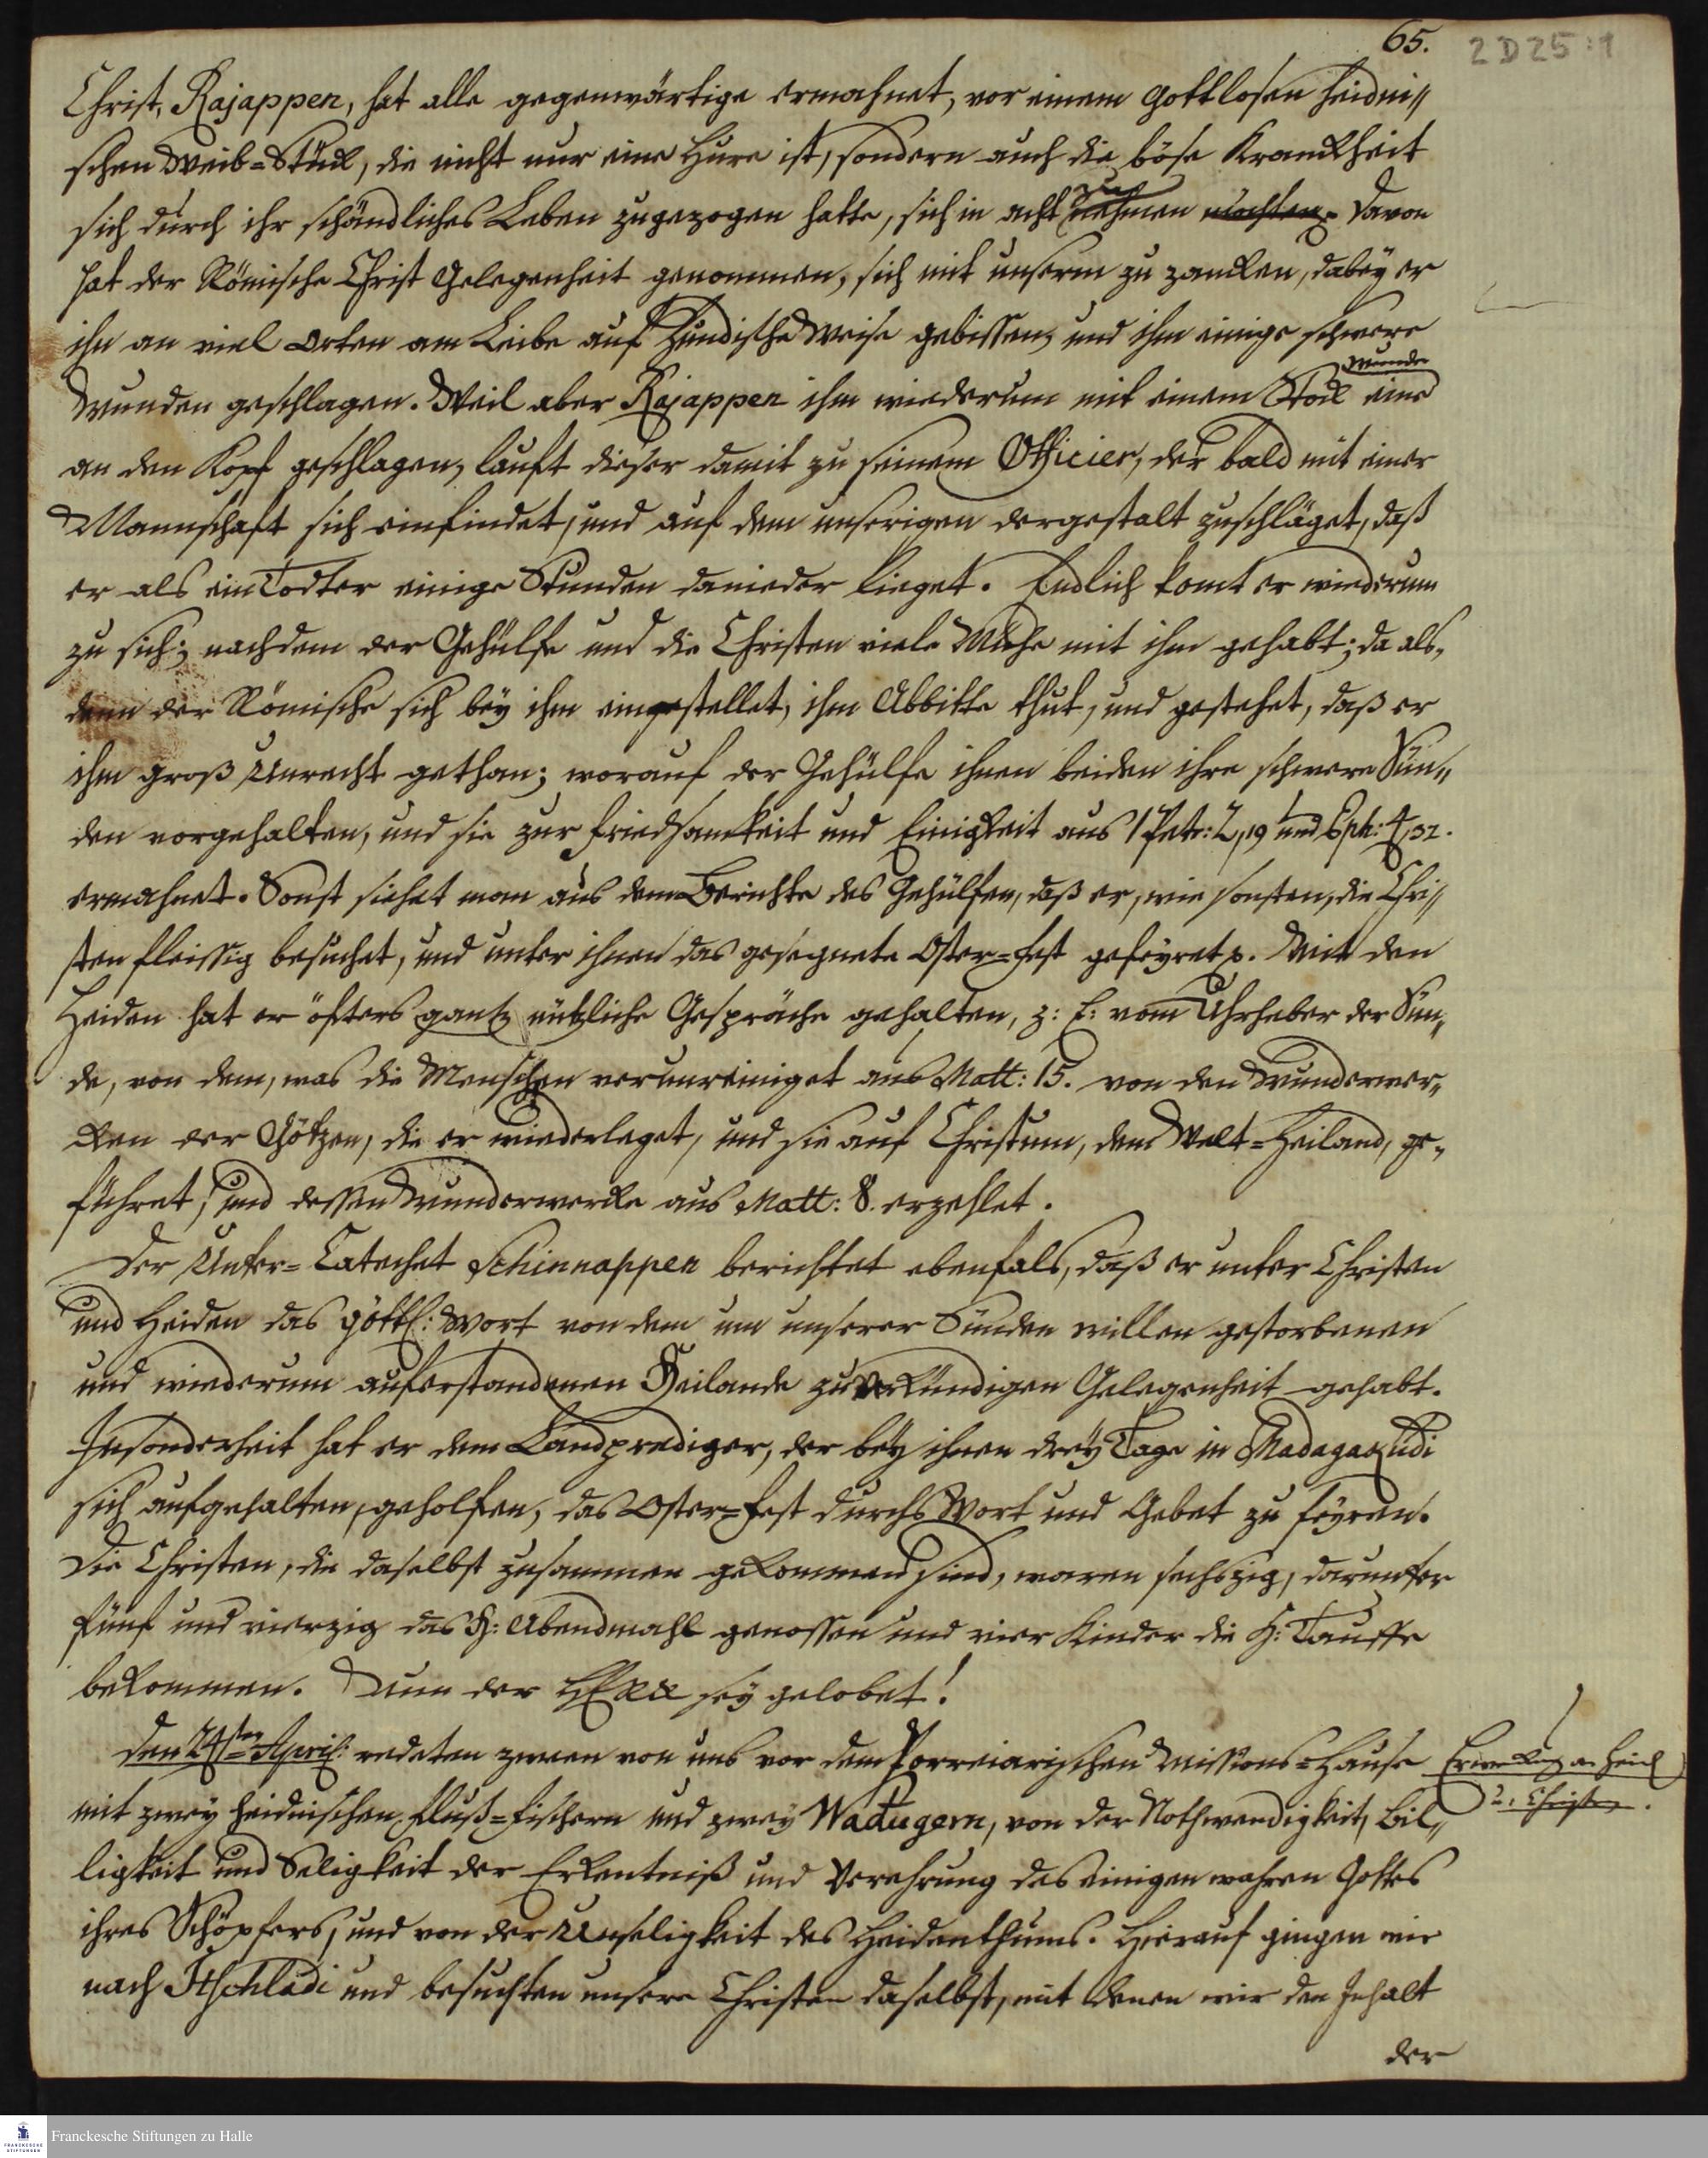 65.
2 D 25 : 1
Christ, Rajappen, hat alle gegenwärtige ermahnet, vor einem gottlosen heidni//
schen Weib=Stück, die nicht nur eine Hure ist, sondern auch die böse Kranckheit
sich durch ihr schändliches Leben zugezogen hatte, sich in acht zu nehmen möchten. Davon
hat der Römische Christ Gelegenheit genommen, sich mit unserm zu zancken, dabey er
ihn an viel Orten am Leibe auf hündische Weise gebissen, und ihm einige schwere
Wunden geschlagen. Weil aber Rajappen ihm wiederum mit einem Stock eine Wunde
an den Kopf geschlagen, lauft dieser damit zu seinem Officier, der bald mit einer
Mannschaft sich einfindet, und auf dem unserigen dergestalt zuschläget, daß
er als ein Todter einige Stunden danieder lieget. Endlich komt er wiederum
zu sich; nachdem der Gehülfe und die Christen viele Mühe mit ihm gehabt; da als„
denn der Römische sich bey ihm eingestellet, ihm Abbitte thut, und gestehet, daß er
ihm groß Unrecht gethan; worauf der Gehülfe ihnen beiden ihre schwere Sün„
den vorgehalten, und sie zur Friedsamkeit und Einigkeit aus 1 Petr: 2,19 und Eph: 4,32.
ermahnet. Sonst siehet man aus dem Berichte des Gehülfen, daß er, wie sonsten, die Chri//
sten fleissig besuchet, und unter ihnen das gesegnete Oster=Fest gefeyret p. Mit den
Heiden hat er öfters gantz nützliche Gespräche gehalten, z: E: vom Uhrheber der Sün„
de, von dem, was die Menschen verunreiniget aus Matt: 15. von den Wunderwer„
cken der Götzen, die er wiederleget, und sie auf Christum, den Welt=Heiland, ge„
führet, und dessen Wunderwercke aus Matt: 8. erzehlet.
Der Unter=Catechet Schinnappen berichtet ebenfals, daß er unter Christen
und Heiden das göttl: Wort von dem um unserer Sünden willen gestorbenen
und wiederum auferstandenen Heilande zu verkündigen Gelegenheit gehabt.
Insonderheit hat er dem Landprediger, der bey ihnen drey Tage in Madagakudi
sich aufgehalten, geholfen, das Oster=Fest durchs Wort und Gebet zu feyren.
Die Christen, die daselbst zusammen gekommen sind, waren sechszig, darunter
fünf und vierzig das H: Abendmahl genossen und vier Kinder die H: Tauffe
bekommen. Nun der HErr sey gelobet!
Den 24sten April: redeten zween von uns vor dem Porreiarischen Missions=Hause
mit zwey heidnischen Fluß=Fischern und zwey Wadugern, von der Nothwendigkeit, Bil„
ligkeit und Seligkeit der Erkentniß und Verehrung des einigen wahren Gottes
ihres Schöpfers, und von der Unseligkeit des Heidenthums. Hierauf gingen wir
nach Itschladi und besuchten unsere Christen daselbst, mit denen wir den Inhalt
der
Erweckung a. Heid
u. Christen.
Franckesche Stiftungen zu Halle